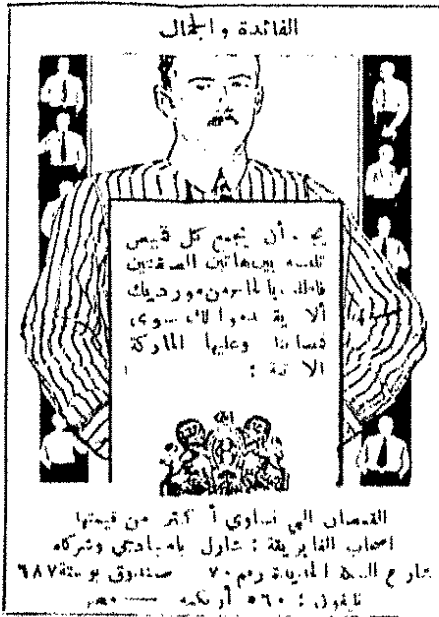 الفائدة والجمال
يجب أن يجمع كل قميص
تلبسه بين هاتين الصفتين
فاطلب بالحاح من موردك
ألا يقدموا لك سوى
قمصاننا وعليها الماركة
الآتية :
القمصان التي تساوي أكثر من قيمتها
اصحاب الفابريقة : شارل بامبادجي وشركاه
شارع السكة الجديدة رقم ٧٠ صندوق بوستة ٦٨٧
تلفون : ٥٦٠ أوتكمه — مصر